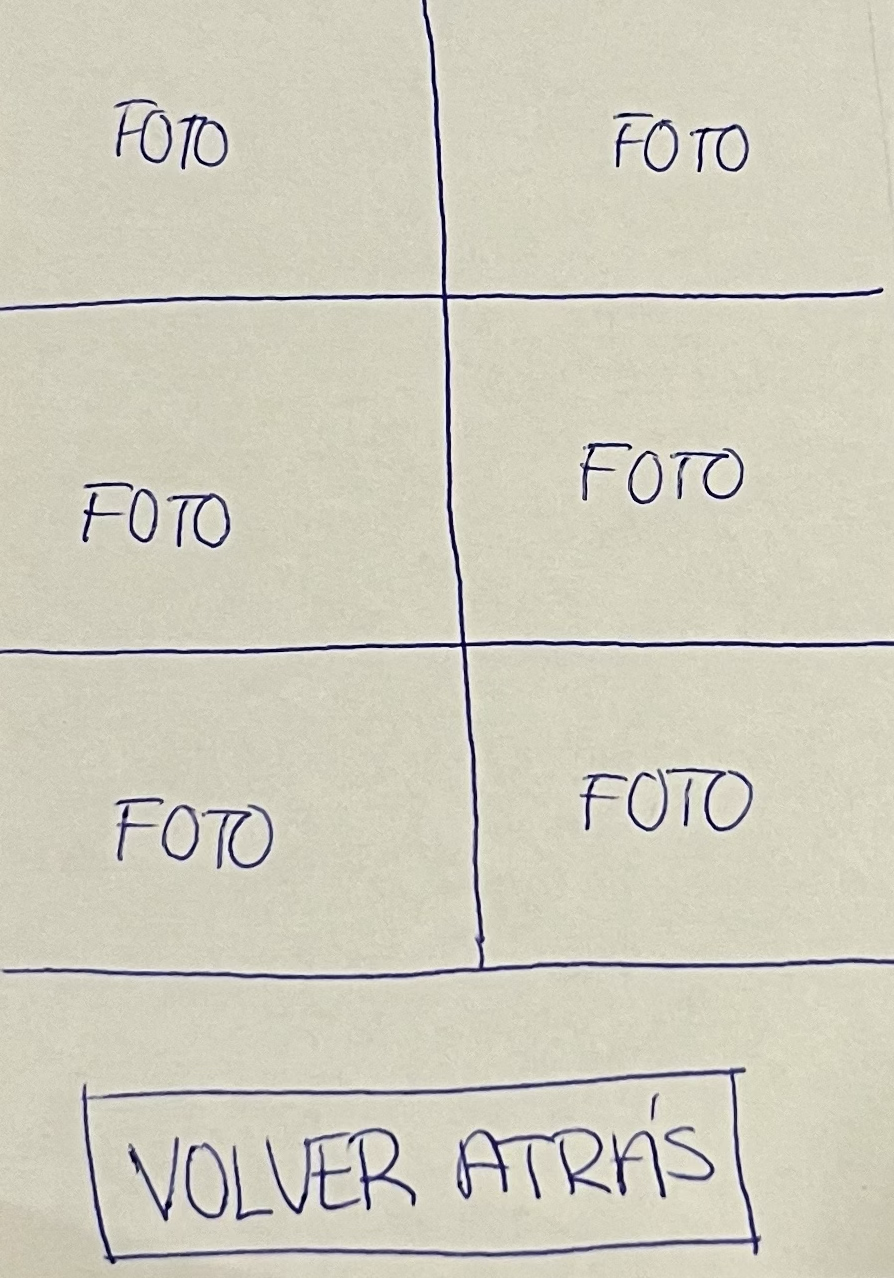 FOTO FOTO
FOTO FOTO
FOTO FOTO
VOLVER ATRÁS